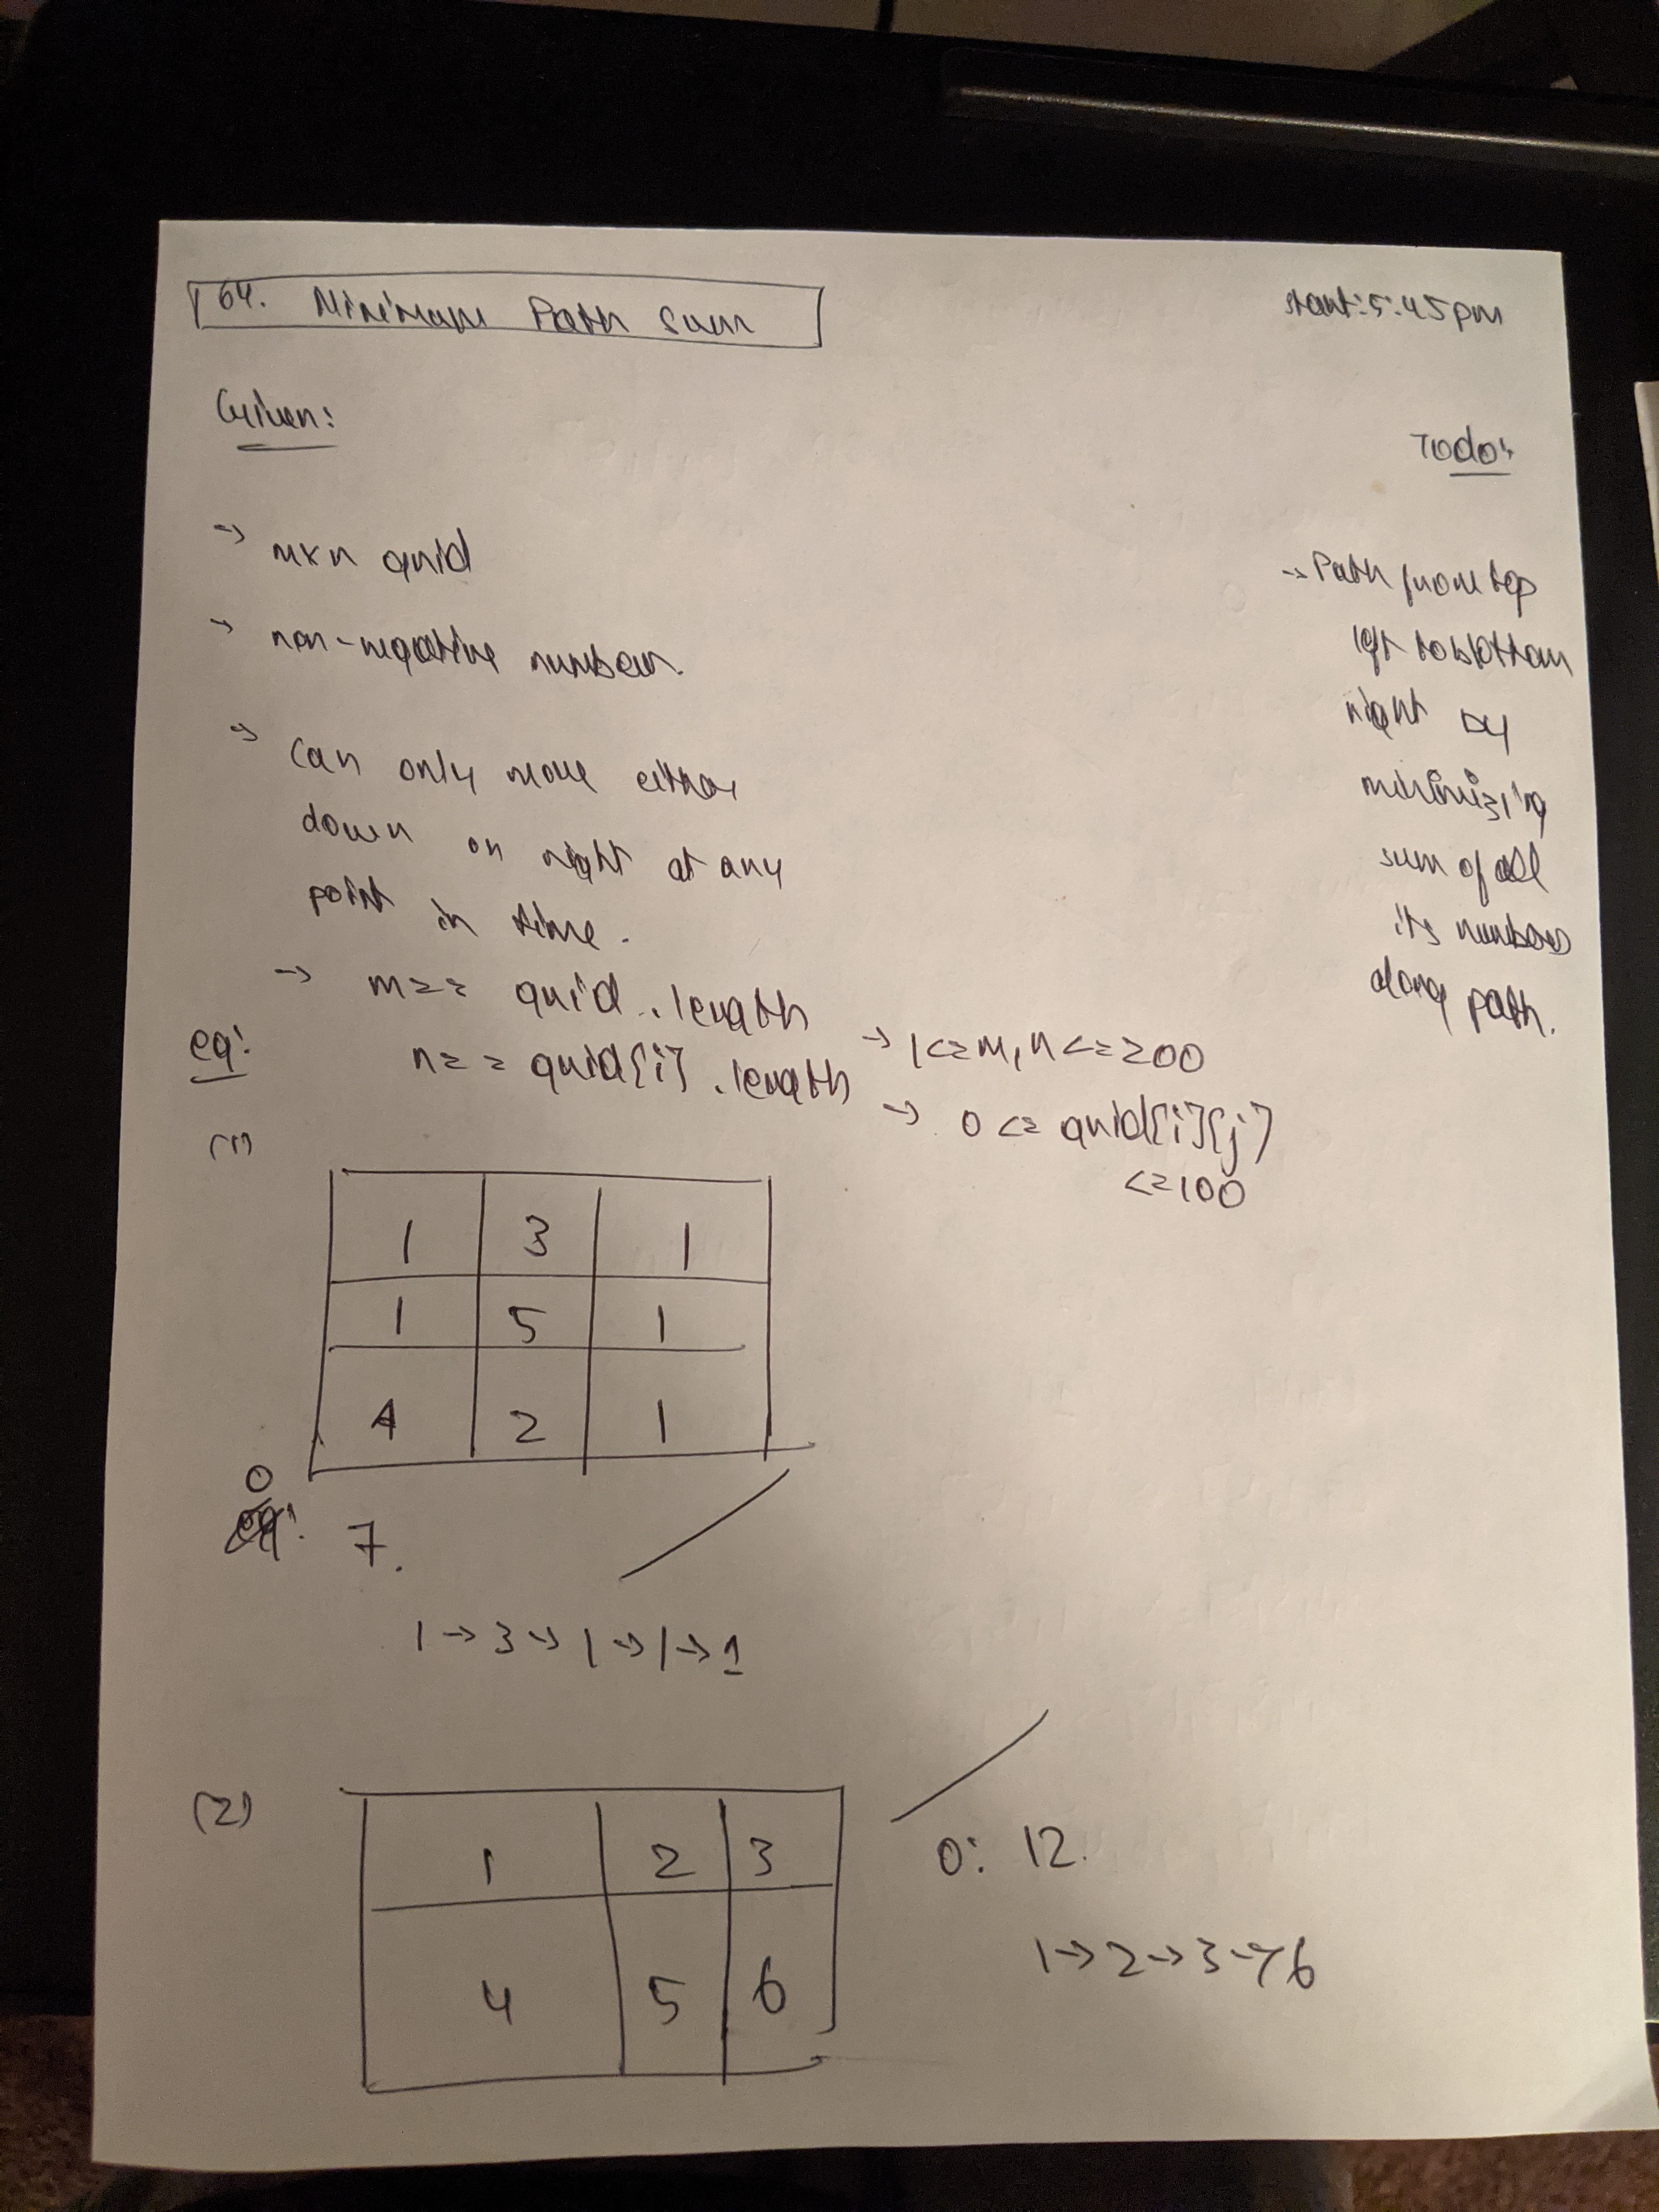 64. Minimum Path Sum
start: 5:45 pm
Given:
→ mxn grid
→ non-negative numbers.
→ can only move either
down or right at any
point in time.
→ m == grid.length
n == grid[i].length
→ 1<=m,n<=200
→ 0 <= grid[i][j]
<=100
Todo:
→ Path from top
left to bottom
right by
minimizing
sum of all
its numbers
along path.
eg:
(1)
1 3 1
1 5 1
4 2 1
O
: 7.
1→3→1→1→1
(2)
1 2 3
4 5 6
O: 12.
1→2→3→6